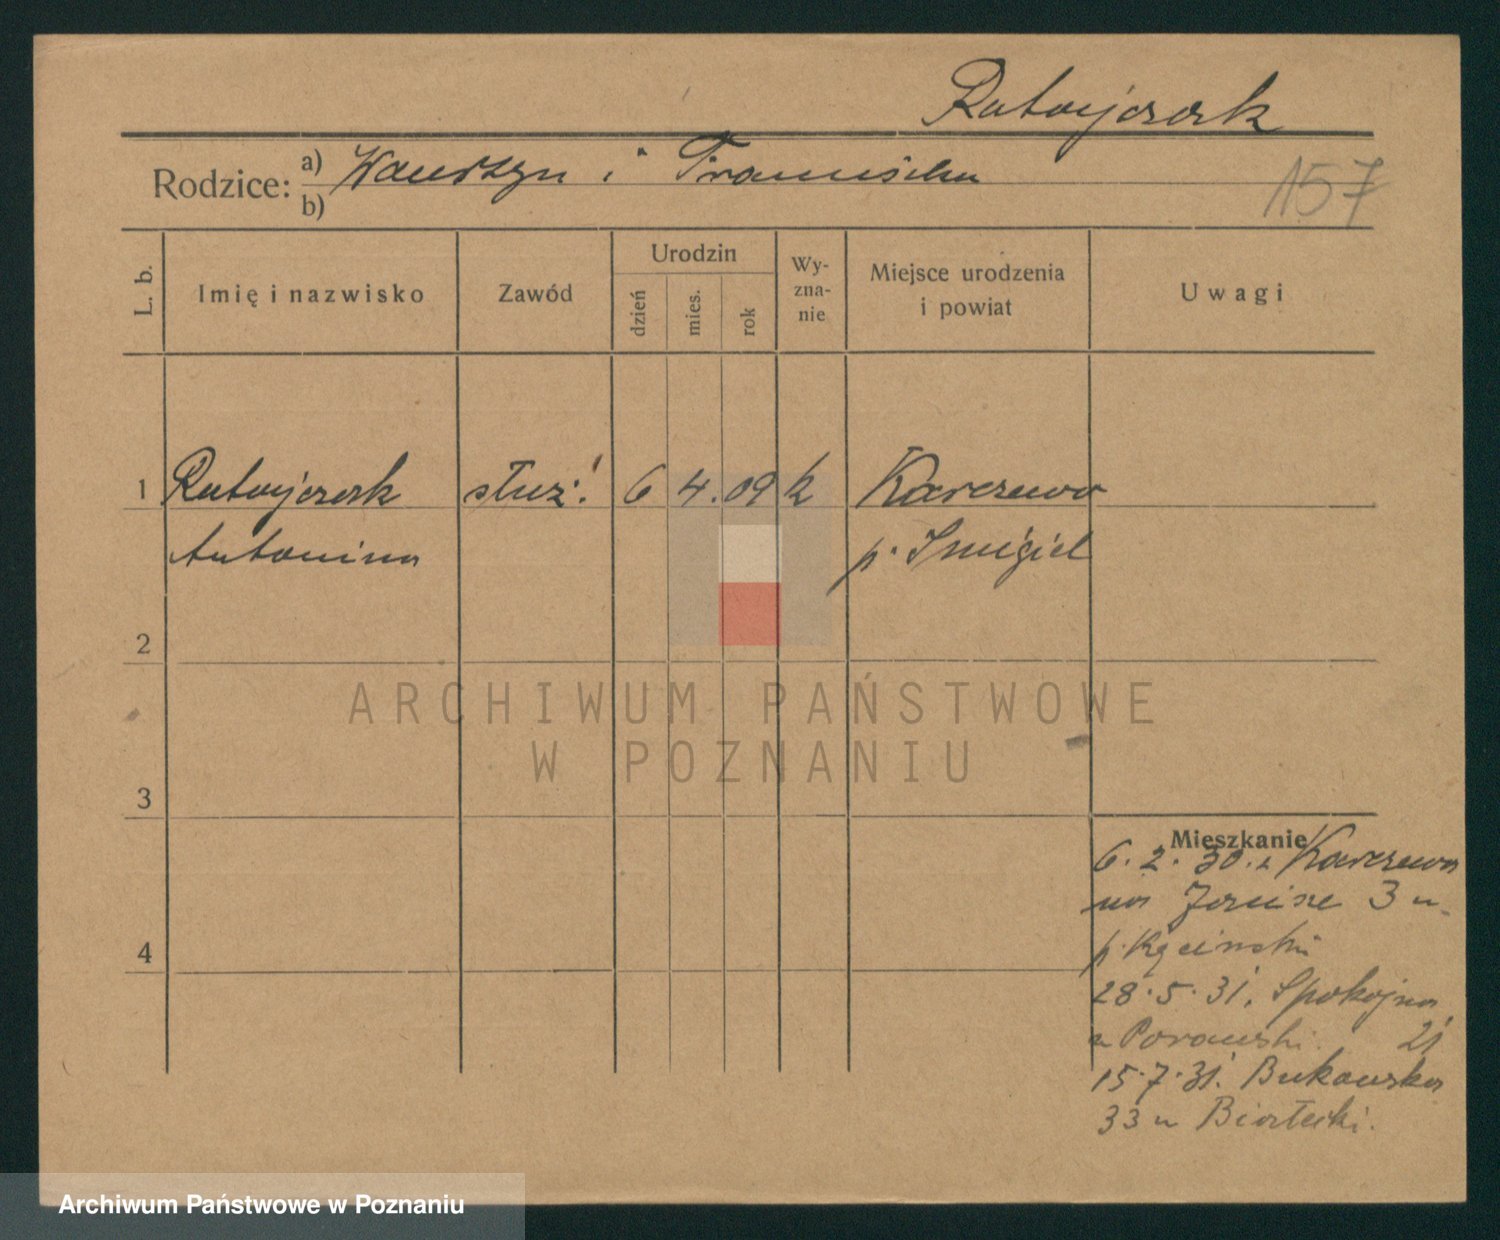 Ratajczak
Rodzice: a) Wawrzyn i Franciszka
b)
157
L. b.
Imię i nazwisko
Zawód
Urodzin
dzień
mies.
rok
Wy-
zna-
nie
Miejsce urodzenia
i powiat
Uwagi
1 Ratajczak służ. 6 4. 09 k Karczewo
Antonina p. Śmigiel
2
ARCHIWUM PAŃSTWOWE
W POZNANIU
3
Mieszkanie
6. 2. 30. z Karczewa
na 3 u.
p.
4
28. 5. 31. Spokojna
u 21
15. 7. 31. Bukowska
33 u
Archiwum Państwowe w Poznaniu